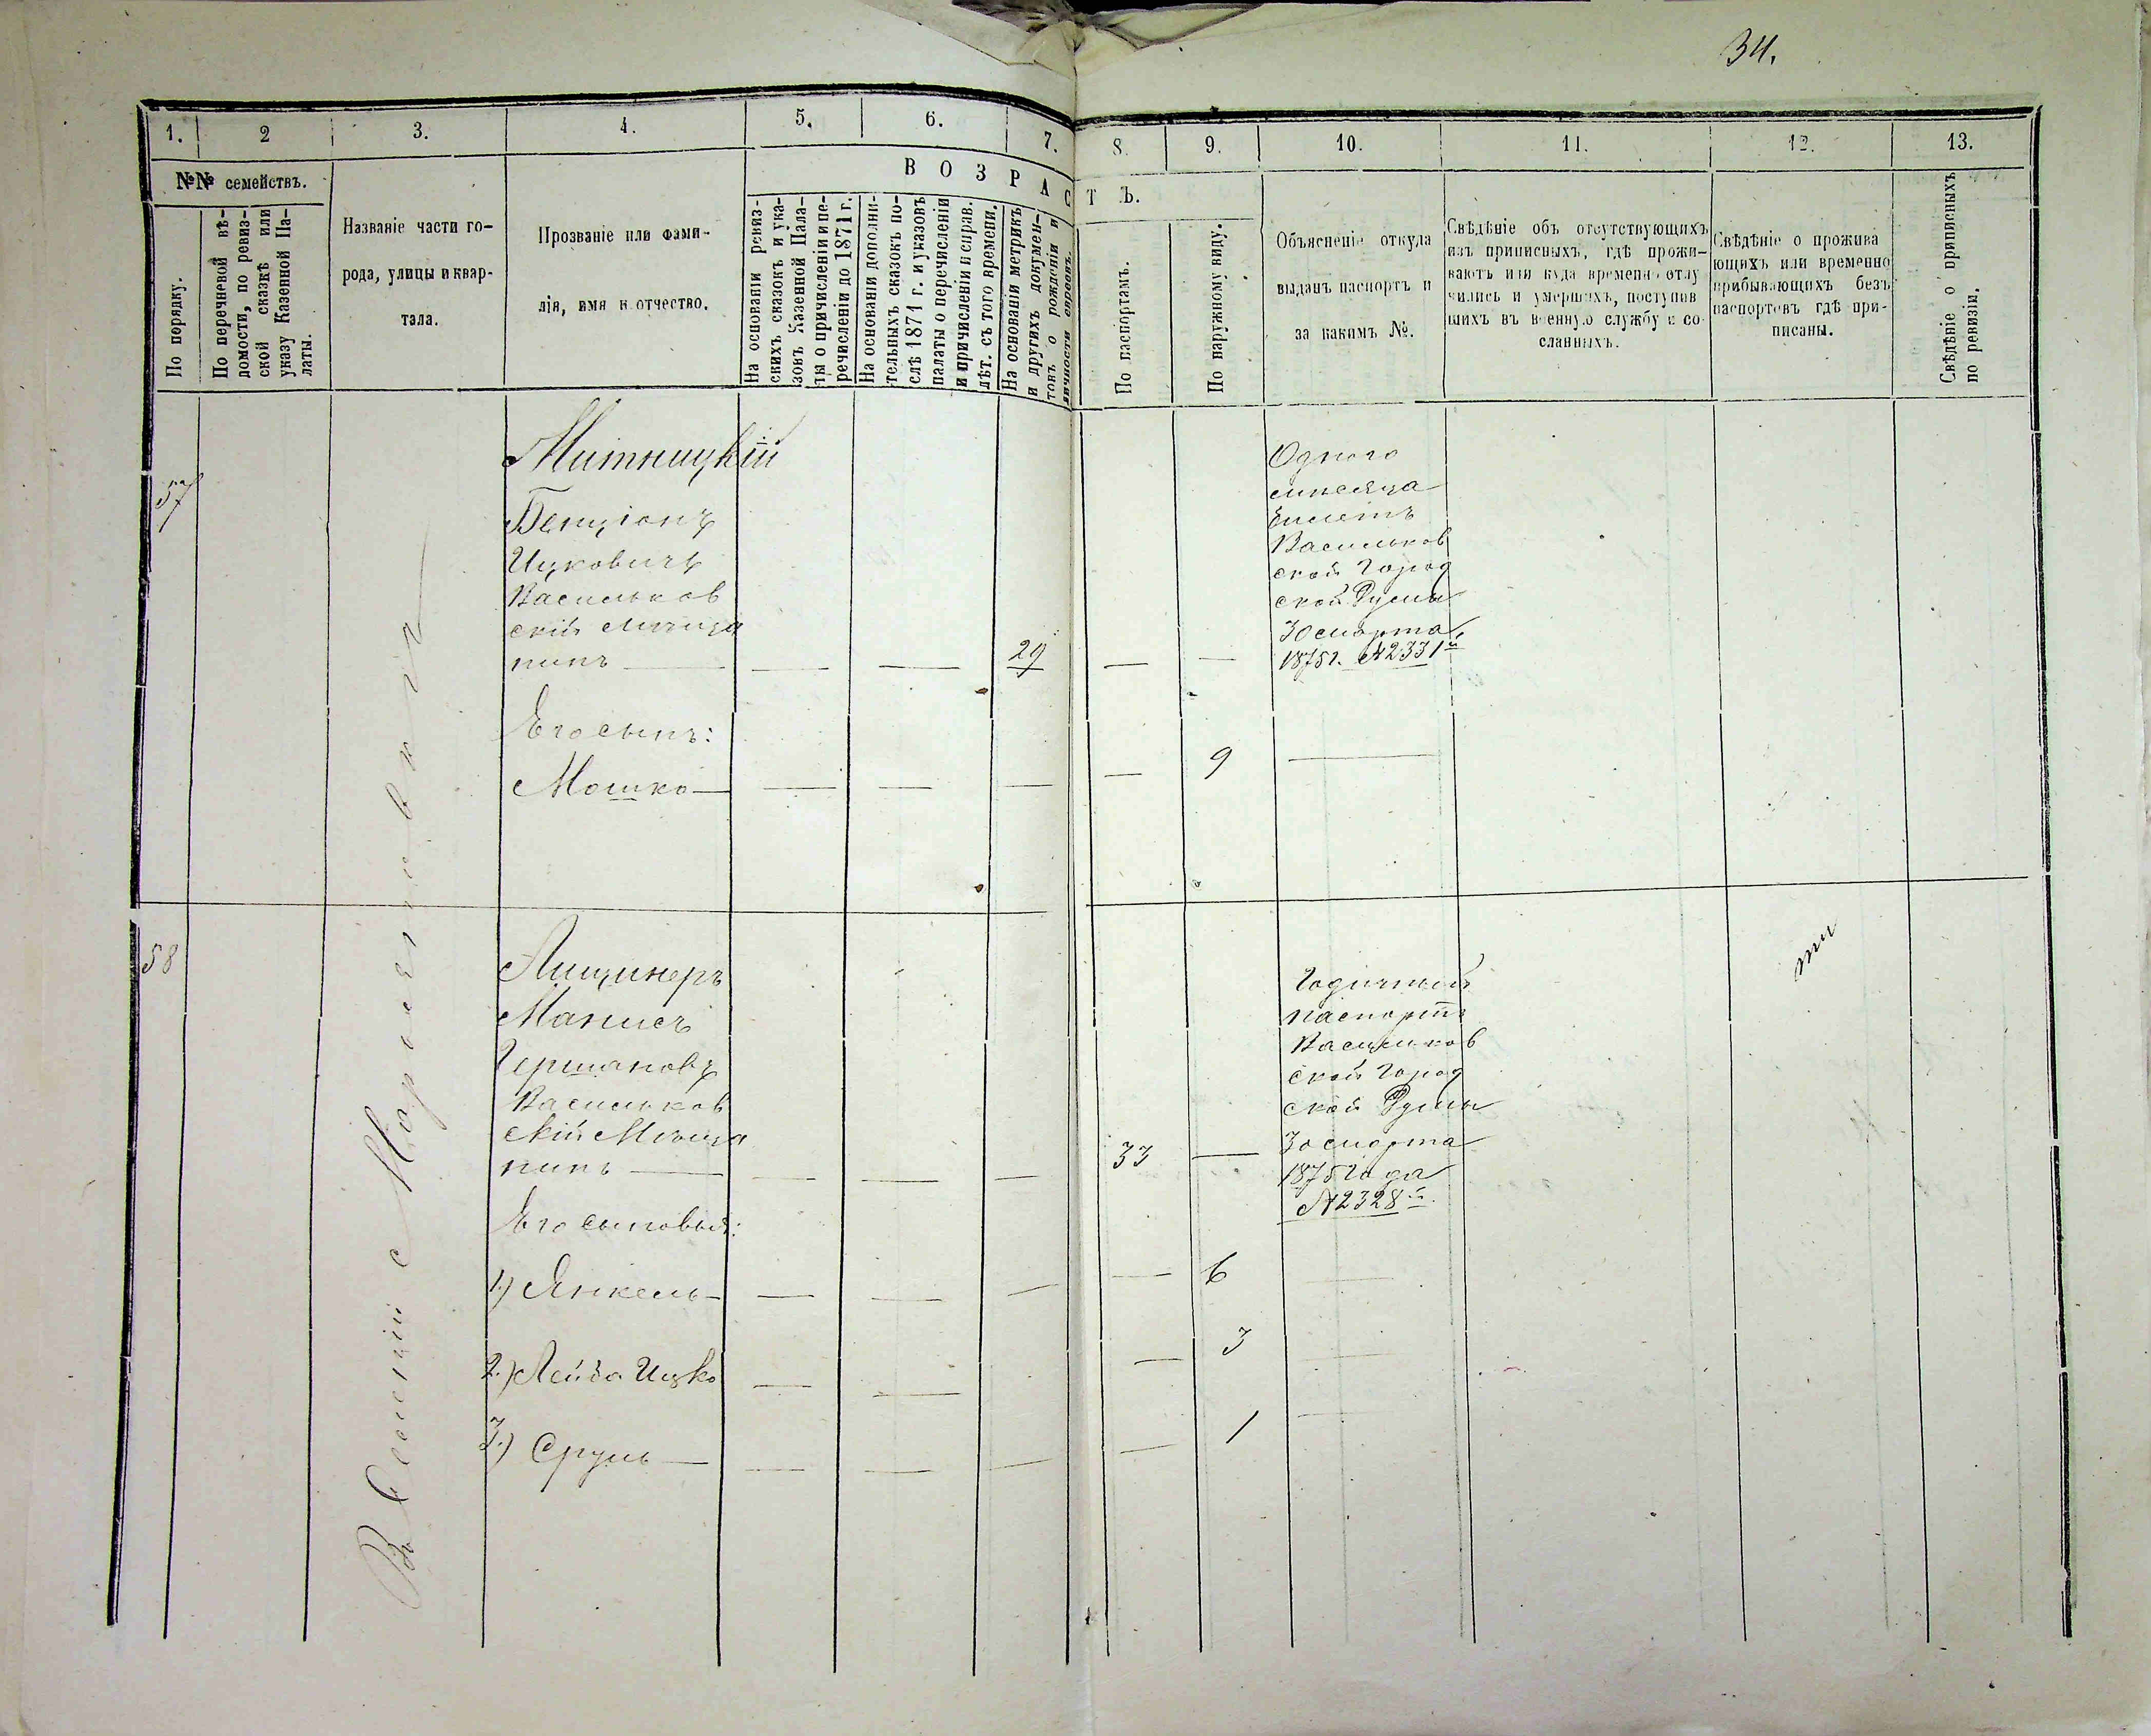 34.
1.
2
3.
4.
5.
6.
7.
8.
9.
10.
11.
12.
13.
№№ семействъ.
По порядку.
По перечневой вѣ-
домости, по ревиз-
ской сказкѣ или
указу Казенной Па-
латы.
Названіе части го-
рода, улицы и квар-
тала.
Прозваніе или фами-
лія, имя и отчество.
ВОЗРАС
ТЪ.
На основаніи ревиз-
скихъ сказокъ и ука-
зовъ Казенной Пала-
ты о причисленіи и пе-
речисленіи до 1871 г.
На основаніи дополни-
тельныхъ сказокъ по-
слѣ 1871 г. и указовъ
палаты о перечисленіи
и причисленіи исправ.
лѣт. съ того времени.
На основаніи метрикъ
и другихъ докумен-
товъ о рожденіи и
личности евреевъ.
По паспортамъ.
По наружному виду.
Объясненіе откуда
выданъ паспортъ и
за какимъ №.
Свѣдѣніе объ отсутствующихъ
изъ приписныхъ, гдѣ прожи-
ваютъ или куда временно отлу
чились и умершихъ, поступив
шихъ въ военную службу и со-
сланныхъ.
Свѣдѣніе о прожива
ющихъ или временно
прибывающихъ безъ
паспортовъ гдѣ при-
писаны.
Свѣдѣніе о приписныхъ
по ревизіи.
57
Митницкій
Бенціонъ
Ицковичъ
Васильков
скій мѣща
нинъ
29
Одного
мѣсяца
билетъ
Васильков
ской Город
ской Думы
30 марта
1875 г. №2331й
Его сынъ:
Мошко
9
58
Лищинеръ
Манисъ
Гершановъ
Васильков
скій Мѣща
нинъ
33
Годичный
паспортъ
Васильков
ской Город
ской Думы
30 марта
1875 года
№2328й.
Его сыновья:
1.) Янкель
6
2.) Лейба Ицко
3
3.) Сруль
1